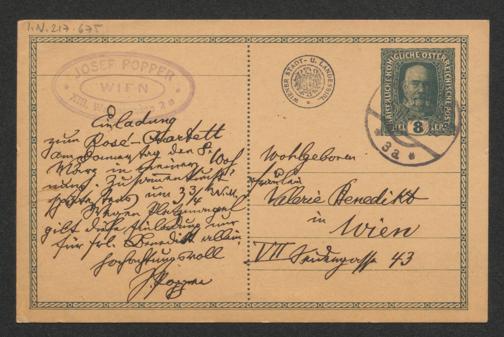 I.N. 217.675
JOSEF POPPER
WIEN
XIII.
Einladung
zum Rosé-Quartett
am Donnerstag den 8.
März in meiner Woh
nung. Zusammenkunft
Wegen Platzmangel
gilt diese Einladung nur
für Frl. Benedikt allein.
Hochachtungsvoll
J. Popper
WIENER STADT- U. LANDESBIBL.
KAISERLICHE KÖNIGLICHE ÖSTERREICHISCHE POST
8
HELLER
3a
Wohlgeboren
Fräulein
Valerie Benedikt
in
Wien
VII Seidengasse 43